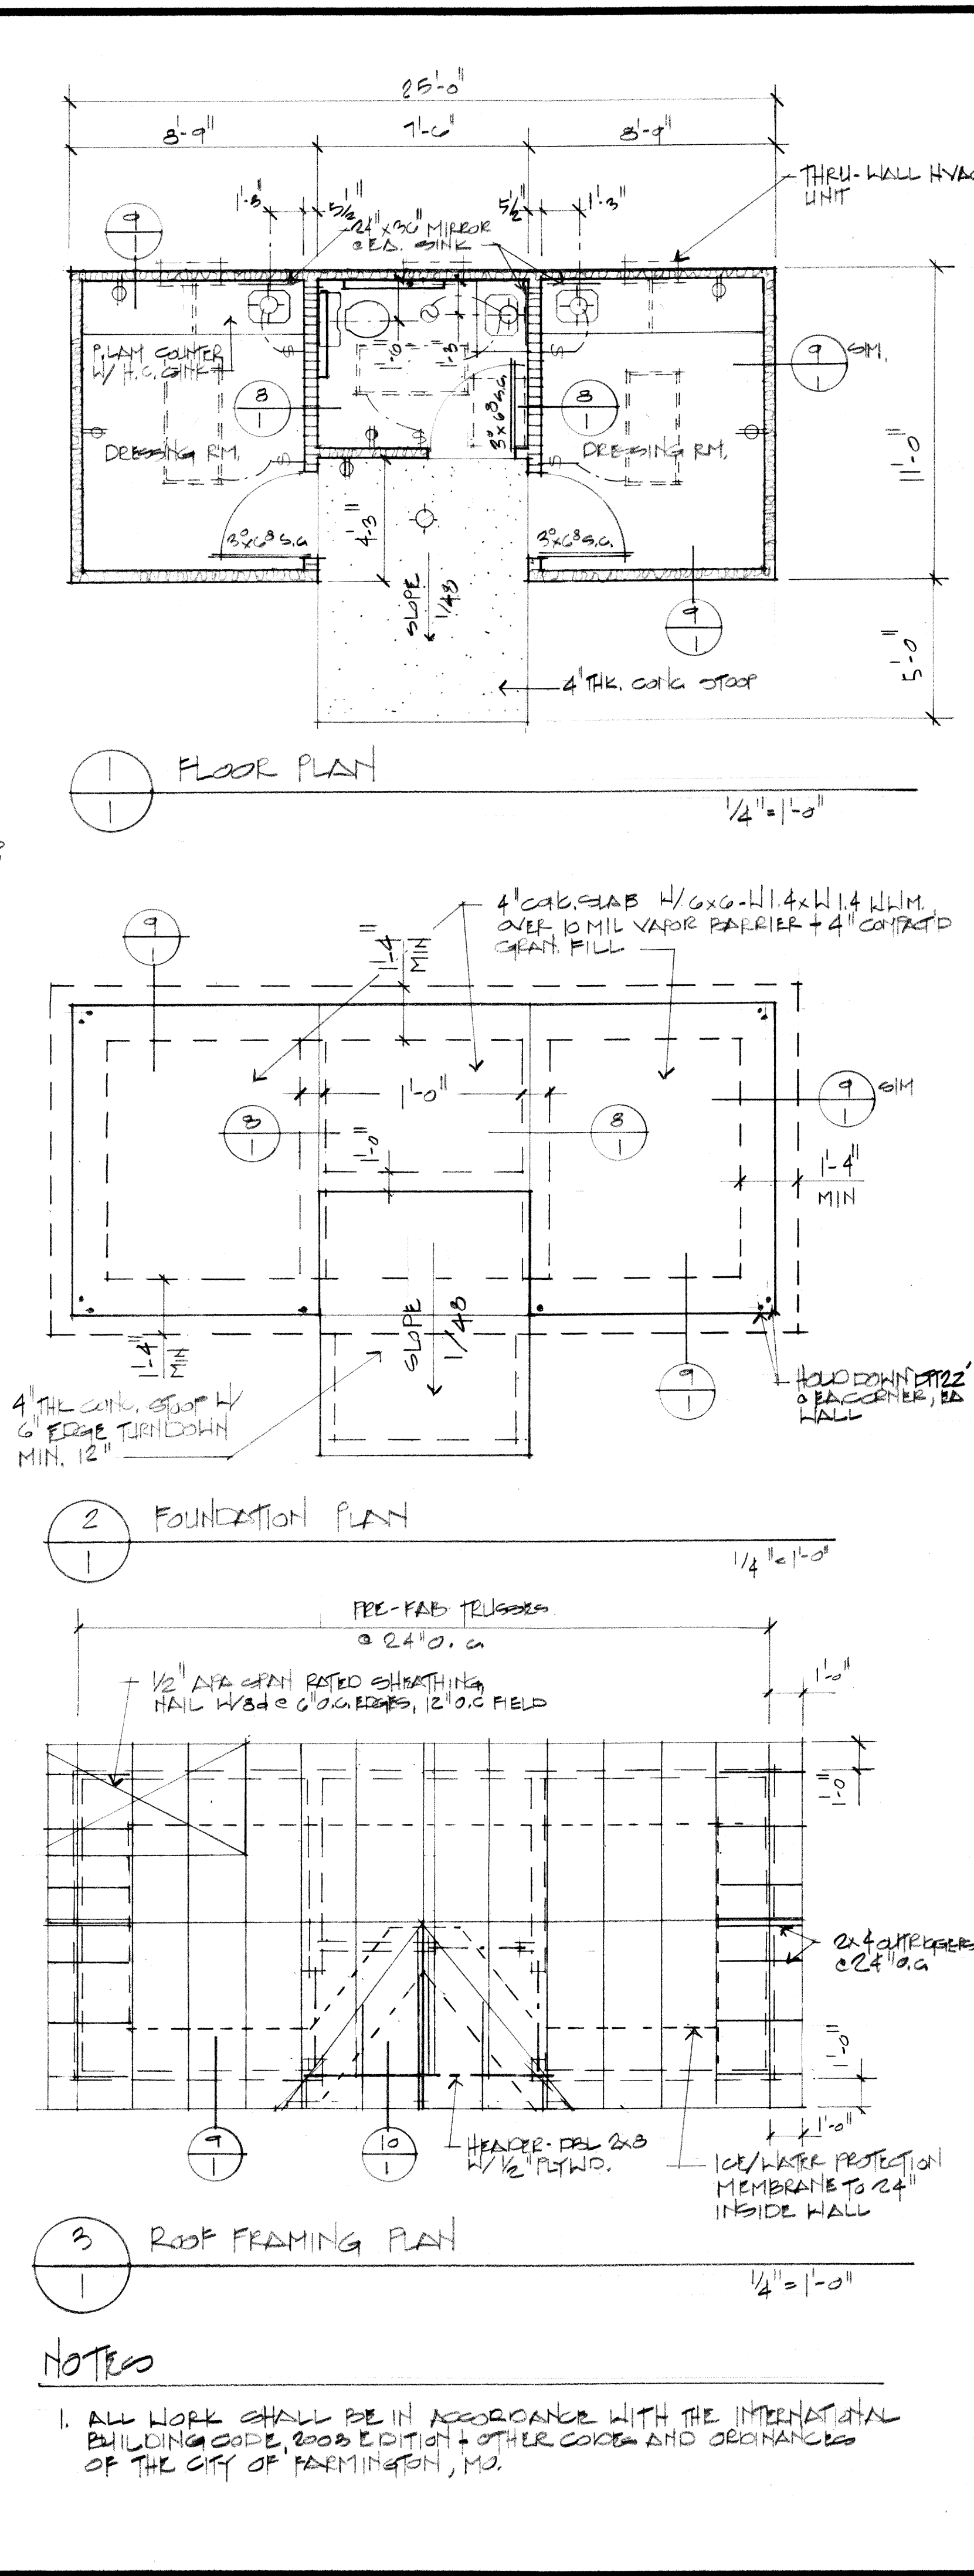 25'-0"
8'-9"
7'-6"
8'-9"
THRU-WALL HVAC
UNIT
1'-3"
5½"
5½"
1'-3"
24"x36" MIRROR
@ EA. SINK
9
P.LAM. COUNTER
W/ H.C. SINK
1'-6"
1'-3"
9
1
SIM.
8
1
8
1
3⁰x6⁸ S.C.
DRESSING RM.
DRESSING RM.
11'-0"
4'-3"
3⁰x6⁸ S.C.
3⁰x6⁸ S.C.
SLOPE
1/48
9
1
5'-0"
4" THK. CONC. STOOP
1
1
FLOOR PLAN
1/4"=1'-0"
4" CONC. SLAB W/ 6x6-W1.4xW1.4 W.W.M.
OVER 10 MIL VAPOR BARRIER + 4" COMPACT'D
GRAN. FILL
9
1
1'-4"
MIN
1'-0"
9
1
SIM
8
1
8
1
1'-0"
1'-4"
MIN
SLOPE
1/48
1'-4"
MIN
9
1
HOLD DOWN DTT2Z
@ EA CORNER, EA
WALL
4" THK CONC. STOOP W/
6" EDGE TURNDOWN
MIN. 12"
2
1
FOUNDATION PLAN
1/4"=1'-0"
PRE-FAB TRUSSES
@ 24" O.C.
1/2" APA SPAN RATED SHEATHING,
NAIL W/8d @ 6" O.C. EDGES, 12" O.C FIELD
1'-0"
1'-0"
2x4 OUTRIGGERS
@ 24" O.C.
1'-0"
9
1
10
1
HEADER-DBL 2x8
W/ 1/2" PLYWD.
1'-0"
ICE/WATER PROTECTION
MEMBRANE TO 24"
INSIDE WALL
3
1
ROOF FRAMING PLAN
1/4"=1'-0"
NOTES
1. ALL WORK SHALL BE IN ACCORDANCE WITH THE INTERNATIONAL
BUILDING CODE, 2003 EDITION + OTHER CODES AND ORDINANCES
OF THE CITY OF FARMINGTON, MO.